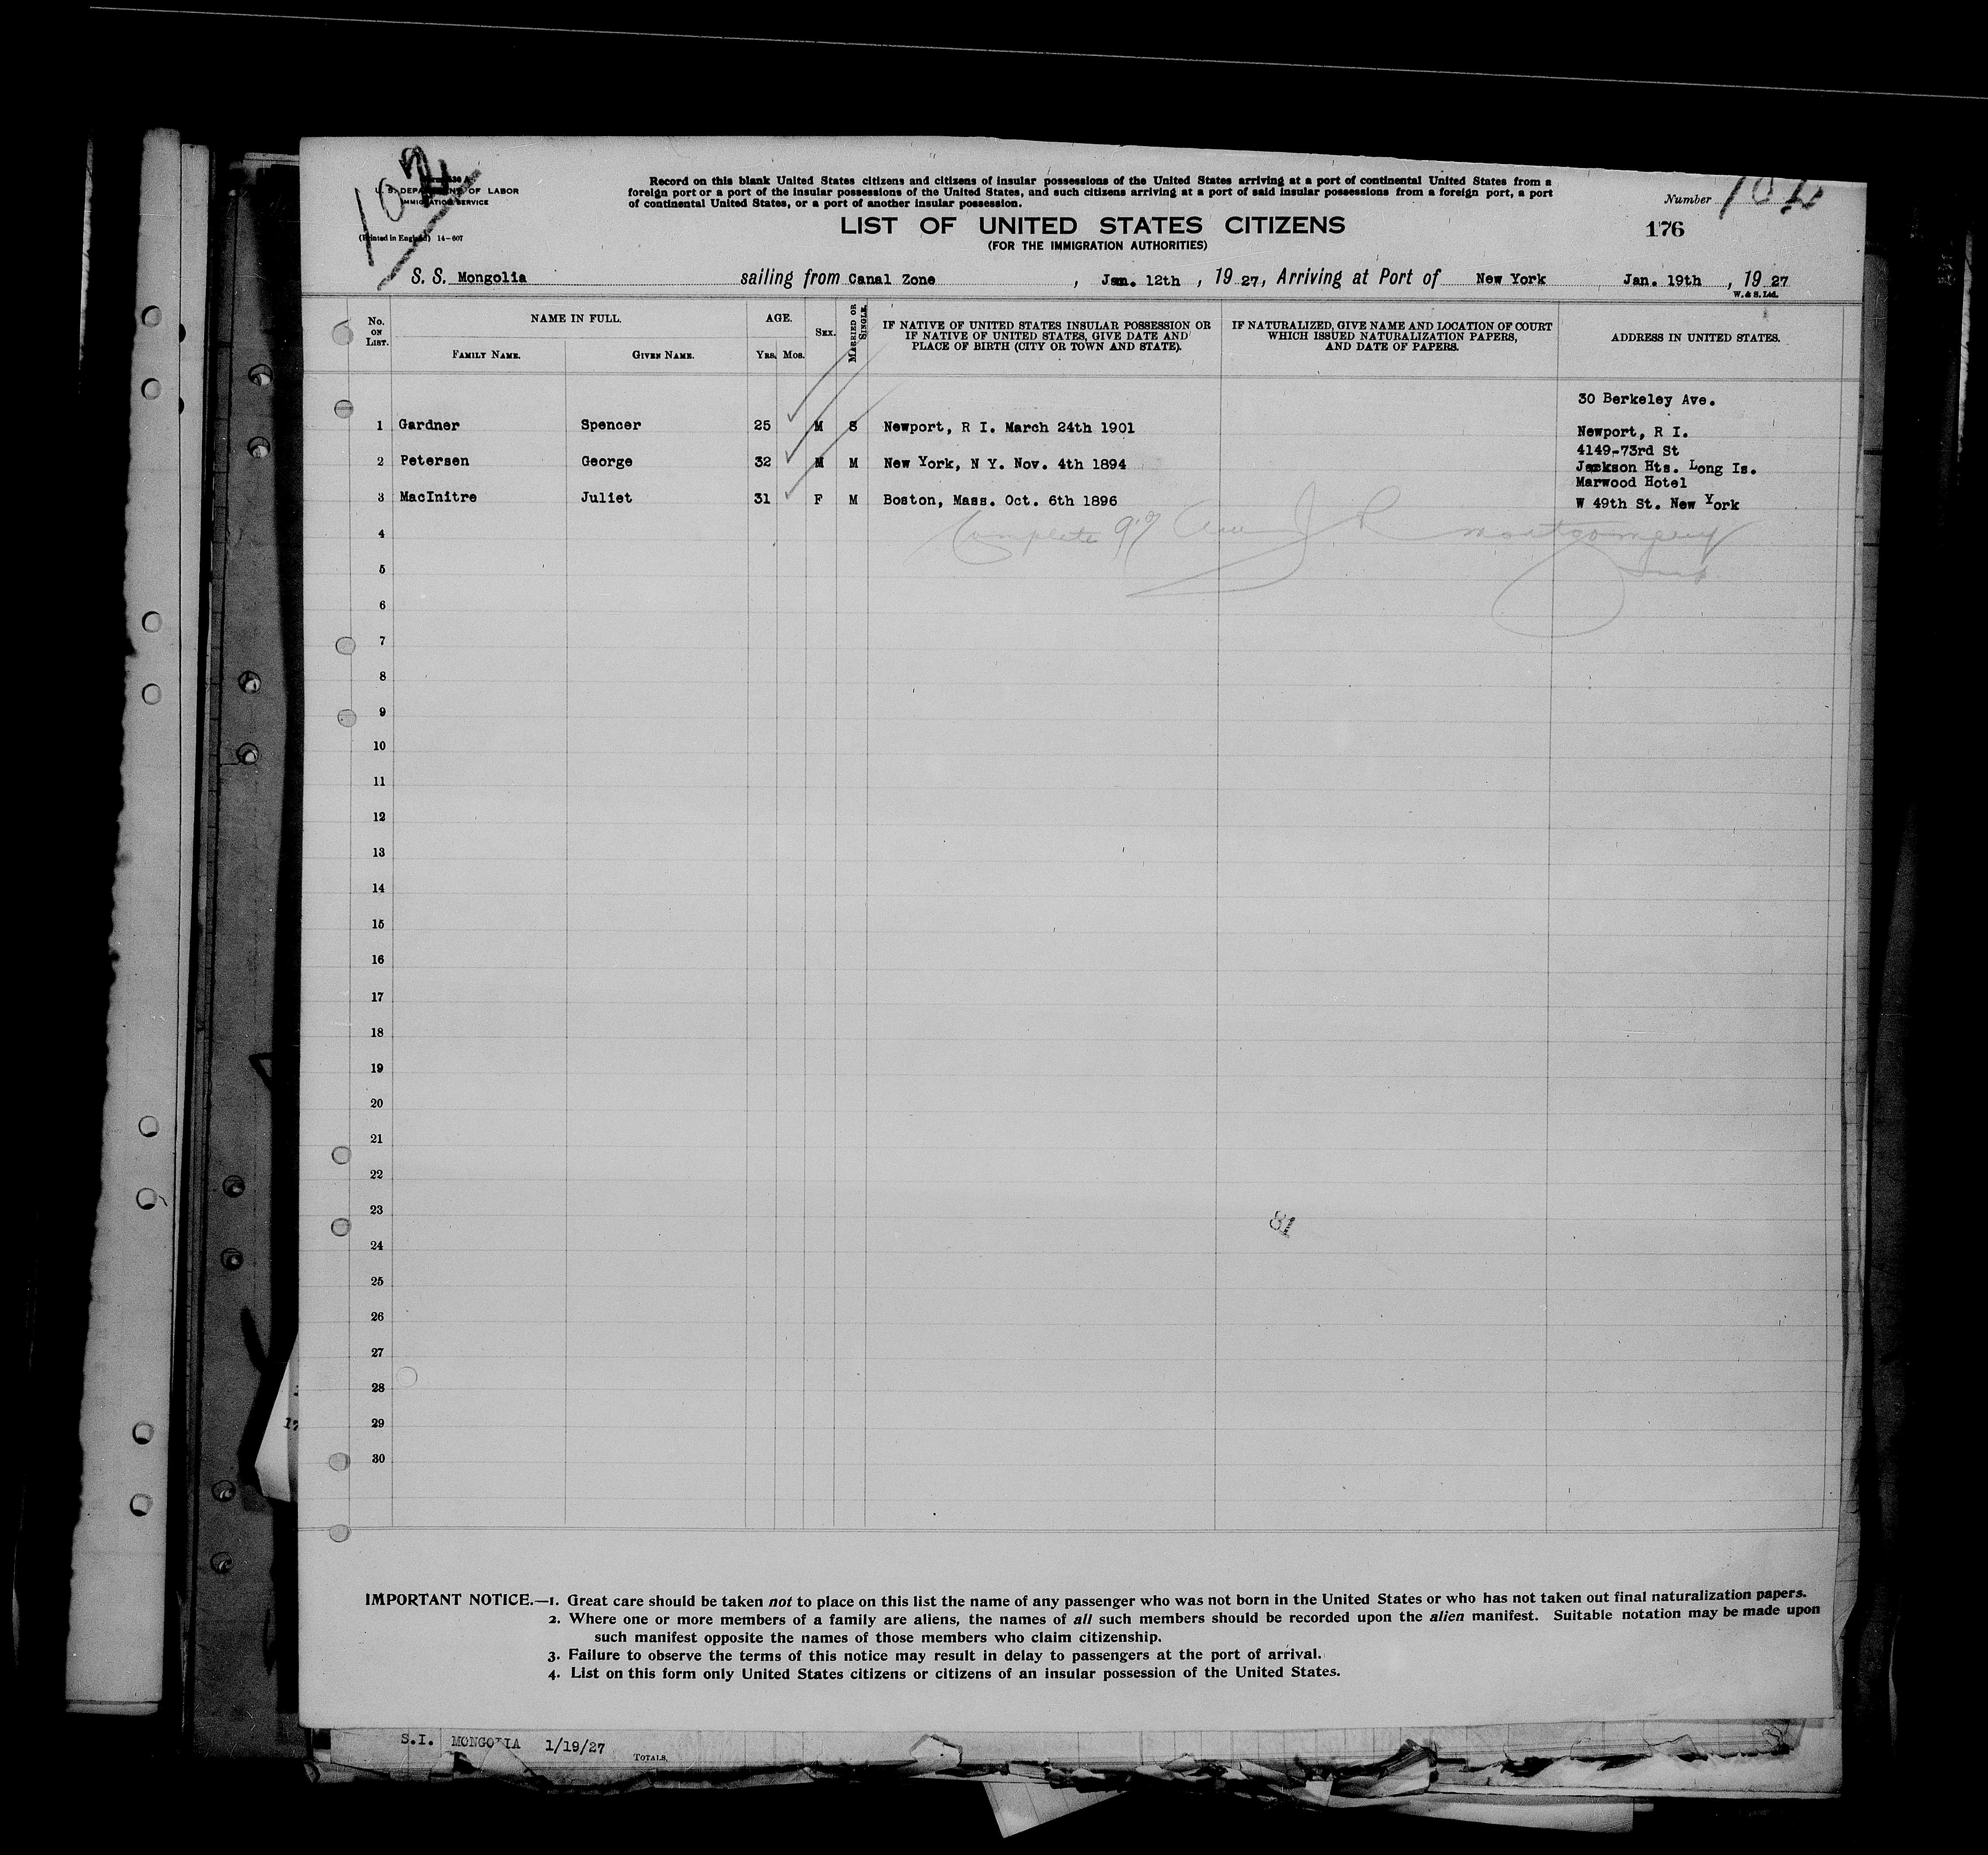 102
U. S. DEPARTMENT OF LABOR
IMMIGRATION SERVICE
(Printed in England) 14-607
Record on this blank United States citizens and citizens of insular possessions of the United States arriving at a port of continental United States from a
foreign port or a port of the insular possessions of the United States, and such citizens arriving at a port of said insular possessions from a foreign port, a port
of continental United States, or a port of another insular possession.
Number 102
176
LIST OF UNITED STATES CITIZENS
(FOR THE IMMIGRATION AUTHORITIES)
S. S. Mongolia sailing from Canal Zone , Jan. 12th , 19 27, Arriving at Port of New York Jan. 19th , 19 27
W. & S. Ltd.
No. ON LIST. NAME IN FULL. AGE. SEX. MARRIED OR SINGLE. IF NATIVE OF UNITED STATES INSULAR POSSESSION OR IF NATIVE OF UNITED STATES, GIVE DATE AND PLACE OF BIRTH (CITY OR TOWN AND STATE). IF NATURALIZED, GIVE NAME AND LOCATION OF COURT WHICH ISSUED NATURALIZATION PAPERS, AND DATE OF PAPERS. ADDRESS IN UNITED STATES.
FAMILY NAME. GIVEN NAME. Yrs. Mos.
30 Berkeley Ave.
1 Gardner Spencer 25 M S Newport, R I. March 24th 1901 Newport, R I.
4149-73rd St
2 Petersen George 32 M M New York, N Y. Nov. 4th 1894 Jackson Hts. Long Is.
Marwood Hotel
3 MacInitre Juliet 31 F M Boston, Mass. Oct. 6th 1896 W 49th St. New York
4 Complete Montgomery
5
6
7
8
9
10
11
12
13
14
15
16
17
18
19
20
21
22
23
81
24
25
26
27
28
29
30
IMPORTANT NOTICE.—1. Great care should be taken not to place on this list the name of any passenger who was not born in the United States or who has not taken out final naturalization papers.
2. Where one or more members of a family are aliens, the names of all such members should be recorded upon the alien manifest. Suitable notation may be made upon
such manifest opposite the names of those members who claim citizenship.
3. Failure to observe the terms of this notice may result in delay to passengers at the port of arrival.
4. List on this form only United States citizens or citizens of an insular possession of the United States.
S.I. MONGOLIA 1/19/27
TOTALS.